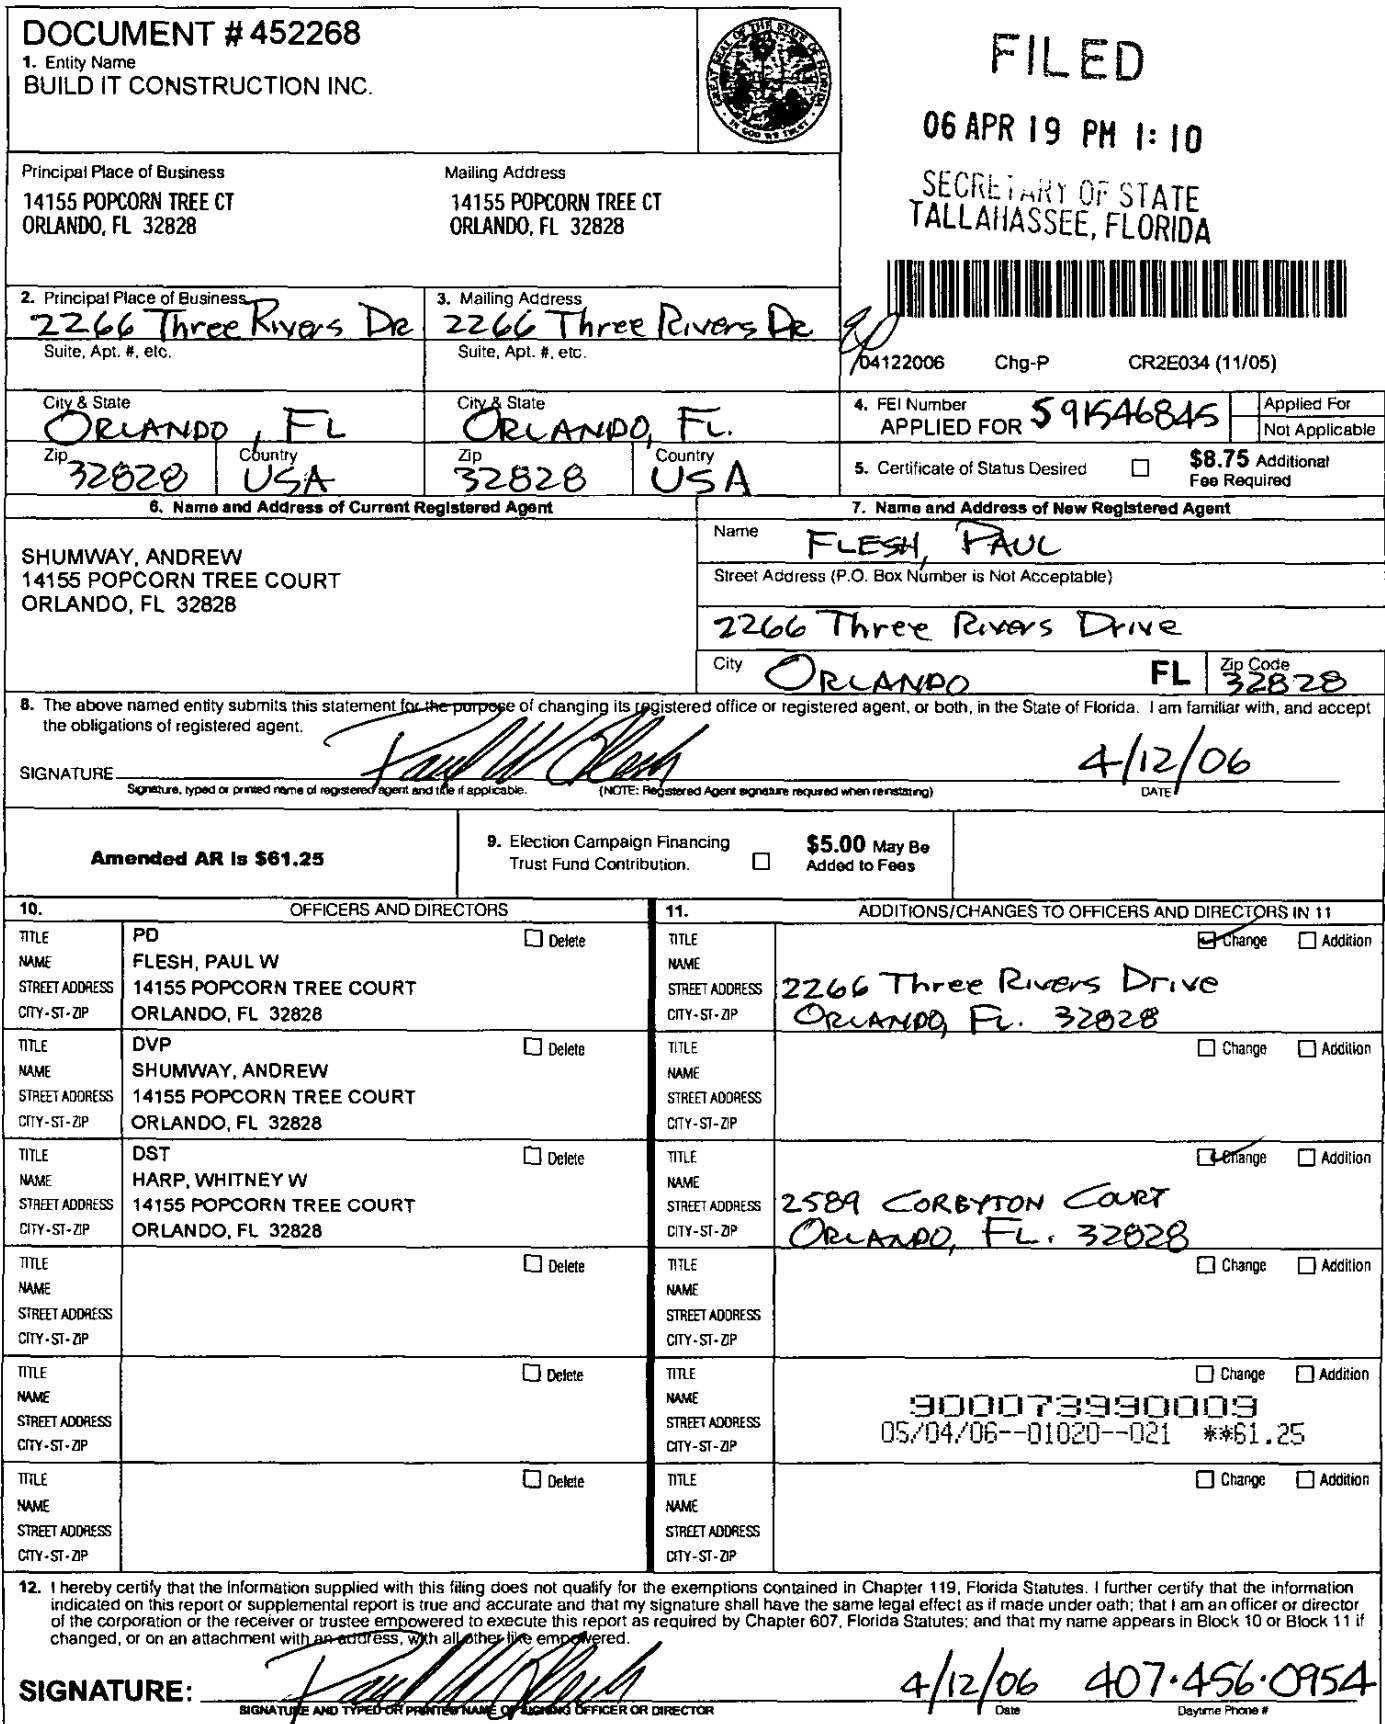 DOCUMENT # 452268
1. Entity Name
BUILD IT CONSTRUCTION INC.
GREAT SEAL OF THE STATE OF FLORIDA
IN GOD WE TRUST
FILED
06 APR 19 PM 1:10
SECRETARY OF STATE
TALLAHASSEE, FLORIDA
Principal Place of Business
14155 POPCORN TREE CT
ORLANDO, FL 32828
Mailing Address
14155 POPCORN TREE CT
ORLANDO, FL 32828
2. Principal Place of Business
2266 Three Rivers DR
Suite, Apt. #, etc.
City & State
ORLANDO, FL
Zip 32828 Country USA
3. Mailing Address
2266 Three Rivers DR
Suite, Apt. #, etc.
City & State
ORLANDO, FL.
Zip 32828 Country USA
04122006 Chg-P CR2E034 (11/05)
4. FEI Number
APPLIED FOR 591546845
Applied For
Not Applicable
5. Certificate of Status Desired $8.75 Additional
Fee Required
6. Name and Address of Current Registered Agent
SHUMWAY, ANDREW
14155 POPCORN TREE COURT
ORLANDO, FL 32828
7. Name and Address of New Registered Agent
Name FLESH, PAUL
Street Address (P.O. Box Number is Not Acceptable)
2266 Three Rivers Drive
City ORLANDO FL Zip Code 32828
8. The above named entity submits this statement for the purpose of changing its registered office or registered agent, or both, in the State of Florida. I am familiar with, and accept
the obligations of registered agent.
SIGNATURE Paul W Flesh 4/12/06
Signature, typed or printed name of registered agent and title if applicable. (NOTE: Registered Agent signature required when reinstating) DATE
Amended AR is $61.25
9. Election Campaign Financing
Trust Fund Contribution.
$5.00 May Be
Added to Fees
10. OFFICERS AND DIRECTORS
11. ADDITIONS/CHANGES TO OFFICERS AND DIRECTORS IN 11
TITLE PD Delete
NAME FLESH, PAUL W
STREET ADDRESS 14155 POPCORN TREE COURT
CITY-ST-ZIP ORLANDO, FL 32828
TITLE Change Addition
NAME
STREET ADDRESS 2266 Three Rivers Drive
CITY-ST-ZIP ORLANDO, FL. 32828
TITLE DVP Delete
NAME SHUMWAY, ANDREW
STREET ADDRESS 14155 POPCORN TREE COURT
CITY-ST-ZIP ORLANDO, FL 32828
TITLE Change Addition
NAME
STREET ADDRESS
CITY-ST-ZIP
TITLE DST Delete
NAME HARP, WHITNEY W
STREET ADDRESS 14155 POPCORN TREE COURT
CITY-ST-ZIP ORLANDO, FL 32828
TITLE Change Addition
NAME
STREET ADDRESS 2589 CORBYTON COURT
CITY-ST-ZIP ORLANDO, FL. 32828
TITLE Delete
NAME
STREET ADDRESS
CITY-ST-ZIP
TITLE Change Addition
NAME
STREET ADDRESS
CITY-ST-ZIP
TITLE Delete
NAME
STREET ADDRESS
CITY-ST-ZIP
TITLE Change Addition
NAME 900073990009
STREET ADDRESS 05/04/06--01020--021 **61.25
CITY-ST-ZIP
TITLE Delete
NAME
STREET ADDRESS
CITY-ST-ZIP
TITLE Change Addition
NAME
STREET ADDRESS
CITY-ST-ZIP
12. I hereby certify that the information supplied with this filing does not qualify for the exemptions contained in Chapter 119, Florida Statutes. I further certify that the information
indicated on this report or supplemental report is true and accurate and that my signature shall have the same legal effect as if made under oath; that I am an officer or director
of the corporation or the receiver or trustee empowered to execute this report as required by Chapter 607, Florida Statutes; and that my name appears in Block 10 or Block 11 if
changed, or on an attachment with an address, with all other like empowered.
SIGNATURE: Paul W Flesh 4/12/06 407.456.0954
SIGNATURE AND TYPED OR PRINTED NAME OF SIGNING OFFICER OR DIRECTOR Date Daytime Phone #